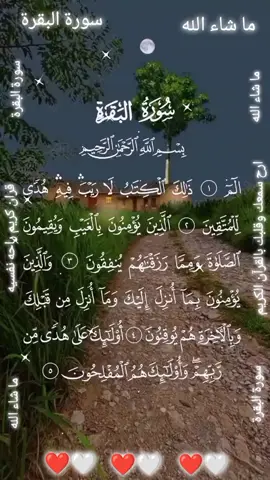 سورة البقرة
ما شاء الله
سورة البقرة
ما شاء الله
سُورَةُ البَقَرَةِ
بِسْمِ اللَّهِ الرَّحْمَٰنِ الرَّحِيمِ
الٓمٓ ١ ذَٰلِكَ الْكِتَٰبُ لَا رَيْبَ ۛ فِيهِ ۛ هُدًى
لِّلْمُتَّقِينَ ٢ الَّذِينَ يُؤْمِنُونَ بِالْغَيْبِ وَيُقِيمُونَ
الصَّلَوٰةَ وَمِمَّا رَزَقْنَٰهُمْ يُنفِقُونَ ٣ وَالَّذِينَ
يُؤْمِنُونَ بِمَا أُنزِلَ إِلَيْكَ وَمَا أُنزِلَ مِن قَبْلِكَ
وَبِالْآخِرَةِ هُمْ يُوقِنُونَ ٤ أُولَٰئِكَ عَلَىٰ هُدًى مِّن
رَّبِّهِمْ ۖ وَأُولَٰئِكَ هُمُ الْمُفْلِحُونَ ٥
ارح سمعك وقلبك بالقرآن الكريم
قران كريم راحه نفسيه
سورة البقرة
ما شاء الله